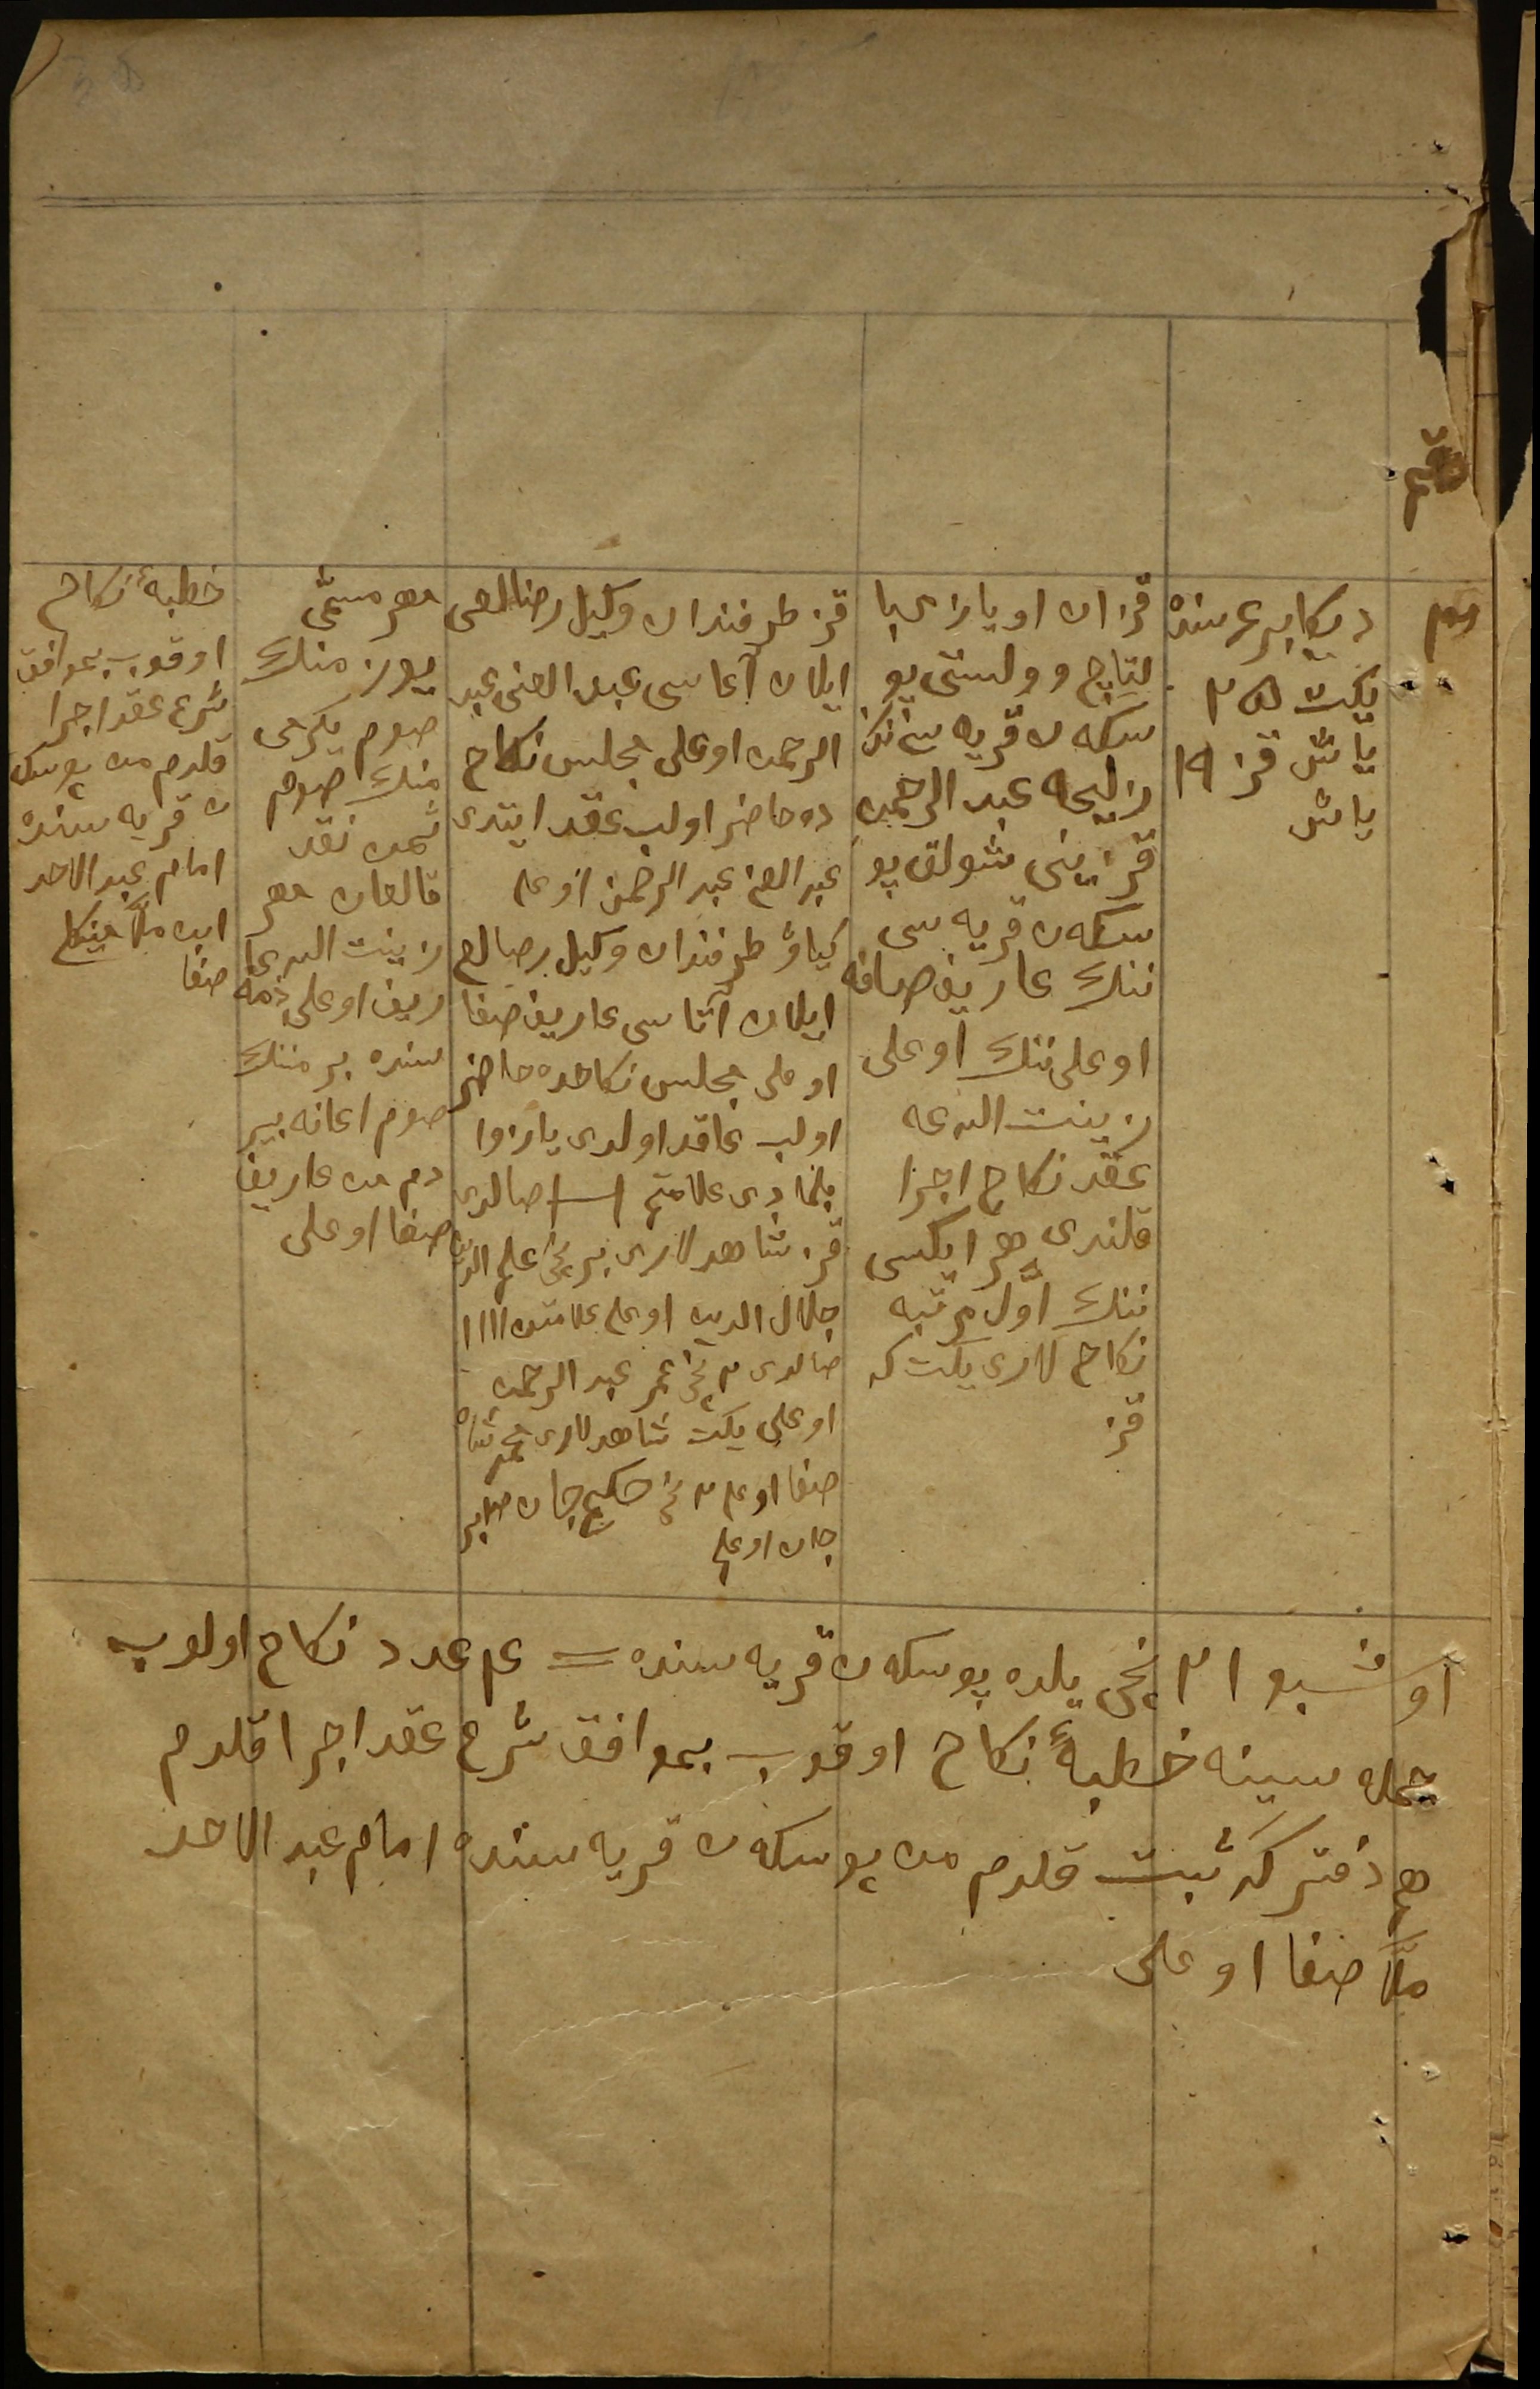 دیکابر ع سنده
یکت ۲۵
یاش قز ۱۹
یاش
قزان اویازی با
لتاچ وولستی پو
سکه ن قریه سی ننک
زلیحه عبد الرحمن
قزینی شولوق پو
سکه ن قریه سی
ننک عاریف صافه
اوغلی ننک اوغلی
زینت الله غه
عقد نکاح اجرا
قلندی هر ایکسی
ننک اوّل مرتبه
نکاح لاری یکت که
قز
قز طرفندان وکیل رضالغی
ایلان آغاسی عبد الغنی عبد
الرحمن اوغلی مجلس نکاح
ده حاضر اولب عقد ایتدی
عبد الغنی عبد الرحمن اوغلی
کیاو طرفندان وکیل رضالغ
ایلان آتاسی عاریف صفا
اوغلی مجلس نکاحده حاضر
اولب عاقد اولدی یازوا
بلمادی علامتی صالدی
قز شاهدلاری بر نچی علم الدین
جلال الدین اوغلی علامتن ااا
صالدی ۲ نچی عمر عبد الرحمن
اوغلی یکت شاهدلاری محمد شاه
صفا اوغلی ۲ نچی حکیم جان صابر
جان اوغلی
مهر مسمّی
یوز منک
صوم یکرمی
منک صوم
ثمن نقد
قالغان مهر
زینت الله عا
ریف اوغلی ذمه
سنده بر مننک
صوم اعانه بیر
دم من عاریف
صفا اوغلی
خطبهٔ نکاح
اوقوب بموافق
شرع عقد اجرا
قلدم من پوسکه
ن قریه سنده
امام عبد الاحد
ابن ملّا
صفا
اوشبو ۲۱ نچی یلده پوسکه ن قریه سنده = عدد نکاح اولوب
جمله سینه خطبهٔ نکاح اوقوب بموافق شرع عقد اجرا قلدم
هم دفتر که ثبت قلدم من پوسکه ن قریه سنده امام عبد الاحد
ملّا صفا اوغلی